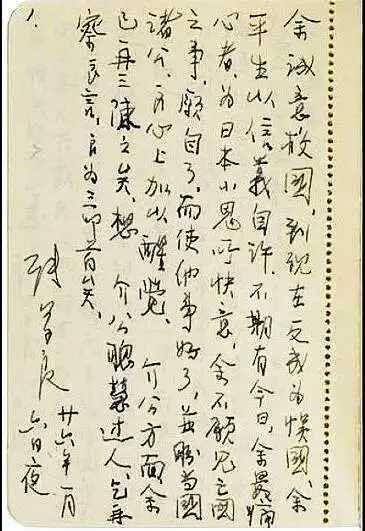 余誠意救國,到現在反成為悞國,余
平生以信義自許,不期有今日,余最痛
心者,為日本小鬼呼快意,余不願見亡國
之事,願自了,而使他事好了,並盼當國
諸公,良心上加以醒覺、 介公方面余
已再三陳之矣,想 介公聰慧過人,乞再
察良言,良為三叩首矣、
張學良
廿六年一月
六日夜